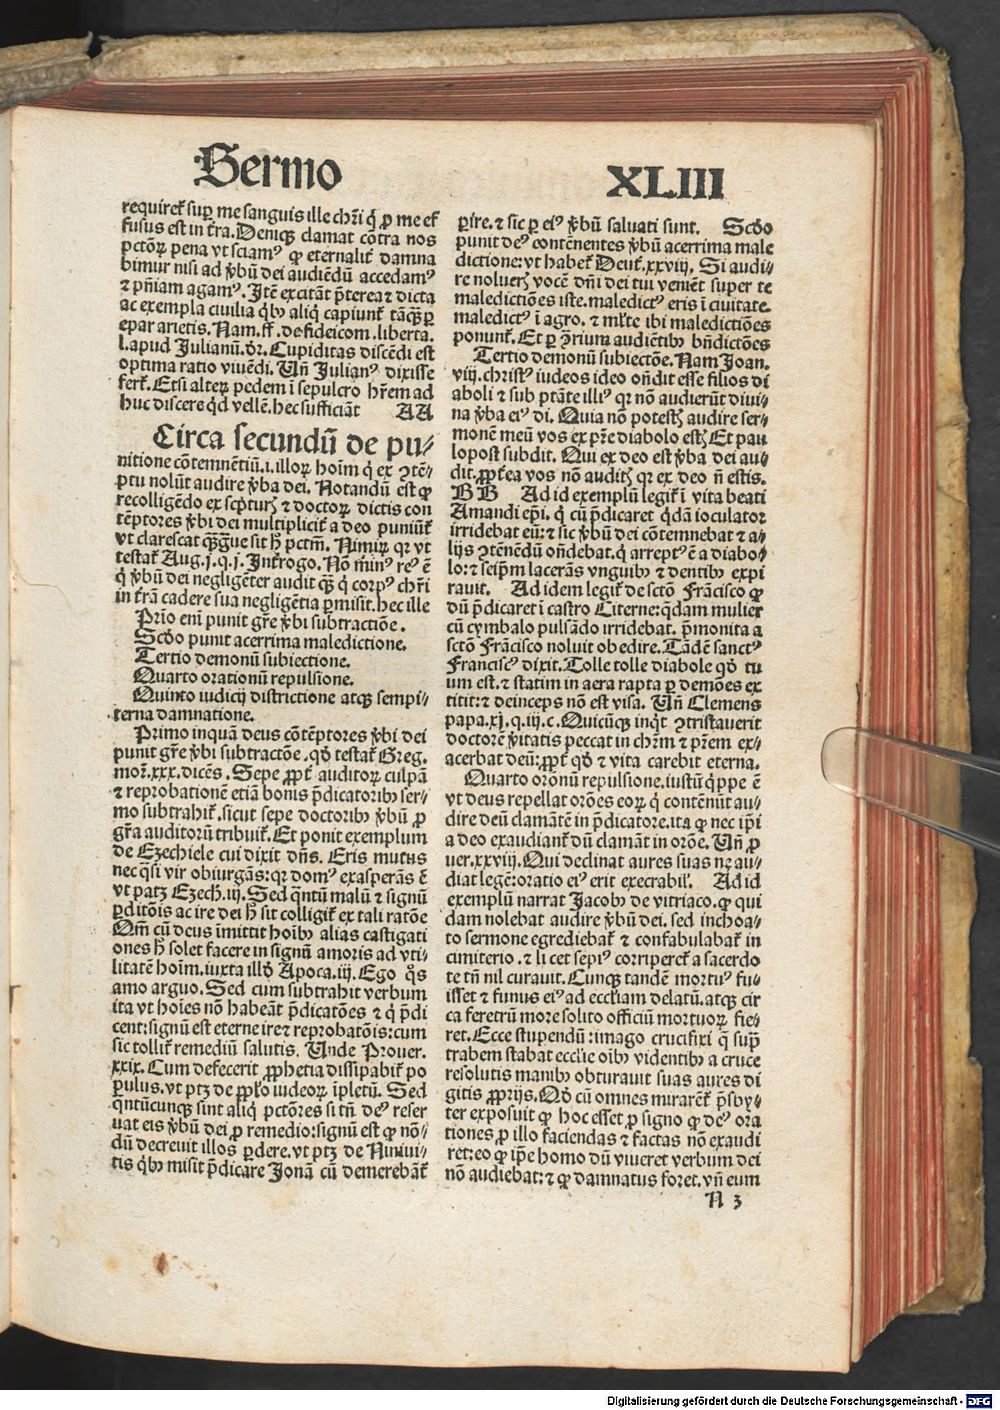 Sermo
XLIII
requiret̃ sup̲ me sanguis ille chr̃i q̇ p̱ me ef
fusus est in t̃ra. Deniqꝫ clamat cõtra nos
pctõꝝ pena vt sciamꝰ ꝙ eternalit̃ damna
bimur nisi ad v̓bũ dei audiẽdũ accedamꝰ
⁊ pñiam agamꝰ. Itẽ excitãt p̃terea ⁊ dicta
ac exempla ciuilia qͥbꝰ aliq̇ capiunt̃ tãqꝫ ꝑ
epar arietis. Nam.ff.de fideicom.liberta.
l.apud Julianũ.dr̃. Cupiditas discẽdi est
optima ratio viuẽdi. Uñ Julianꝰ dixisse
fert̃. Etsi alteꝝ pedem ĩ sepulcro hr̃em ad
huc discere qd̓ vellẽ. hec sufficiãt AA
Circa secundũ de pu⸗
nitione cõtemnẽtiũ.i.illoꝝ hoĩm q̇ ex ꝯtẽ⸗
ptu nolũt audire v̓ba dei. Notandũ est ꝙ
recolligẽdo ex scpturꝭ ⁊ doctoꝝ dictis con
tẽptores v̓bi dei multiplicit̃ a deo puniũt̃
vt clarescat qꝫ̃gͣue sit h̓ pctm̃. Nimiꝝ qꝛ vt
testat̃ Aug.j.q.j. Int̃rogo. Nõ minꝰ reꝰ ẽ
q̇ v̓bũ dei negligẽter audit qꝫ̃ q̇ corpꝰ chr̃i
in t̃rã cadere sua negligẽtia ꝑmisit. hec ille
Prĩo eni punit gr̃e v̓bi subtractiõe.
Scd̓o punit acerrima maledictione.
Tertio demonũ subiectione.
Quarto orationũ repulsione.
Quinto iudicij districtione atqꝫ sempi⸗
terna damnatione.
Primo inquã deus cõtẽptores v̓bi dei
punit gr̃e v̓bi subtractõe. qd̓ testat̃ Greg.
mor̃.xxx.dicẽs. Sepe ꝓpt̃ auditoꝝ culpã
⁊ reprobationẽ etiã bonis p̃dicatoribꝰ ser⸗
mo subtrahit̃. sicut sepe doctoribꝰ v̓bũ ꝓ
gr̃a auditorũ tribuit̃. Et ponit exemplum
de Ezechiele cui dixit dñs. Eris mutus
nec qͣsi vir obiurgãs: qꝛ domꝰ exasperãs ẽ
vt patꝫ Ezech̓.iij. Sed qͣntũ malũ ⁊ signũ
ꝑditõis ac ire dei h̓ sit colligit̃ ex tali ratõe
Qm̃ cũ deus ĩmittit hoĩbꝰ alias castigati
ones h̓ solet facere in signũ amoris ad vti⸗
litatẽ hoĩm. iuxta illd̓ Apoca.iij. Ego q̓s
amo arguo. Sed cum subtrahit verbum
ita vt hoĩes nõ habeãt p̃dicatões ⁊ q̇ p̃di
cent: signũ est eterne ire ⁊ reprobatõis: cum
sic tollit̃ remediũ salutis. Unde Prouer.
xxix. Cum defecerit ꝓphetia dissipabit̃ po
pulus. vt ptꝫ de pp̃l̓o iudeoꝝ ĩpletũ. Sed
qͣntũcunqꝫ sint aliq̇ pctõres si tñ deꝰ reser
uat eis v̓bũ dei ꝓ remedio: signũ est ꝙ nõ⸗
dũ decreuit illos ꝑdere. vt ptꝫ de Niniui⸗
tis qͥbꝰ misit p̃dicare Jonã cũ demerebãt̃
ꝑire. ⁊ sic ꝑ eiꝰ v̓bũ saluati sunt. Scd̓o
punit deꝰ contẽnentes v̓bũ acerrima male
dictione: vt habet̃ Deut̃.xxviij. Si audi⸗
re noluerꝭ vocẽ dñi dei tui veniẽt super te
maledictiões iste. maledictꝰ eris ĩ ciuitate.
maledictꝰ ĩ agro. ⁊ ml̓te ibi maledictiões
ponunt̃. Et ꝑ ꝯ̃rium audiẽtibꝰ bñdictões
Tertio demonũ subiectõe. Nam Joan.
viij. christꝰ iudeos ideo oñdit esse filios di
aboli ⁊ sub ptãte illiꝰ qꝛ nõ audierũt diui⸗
na v̓ba eiꝰ di. Quia nõ potestꝭ audire ser⸗
monẽ meũ vos ex pr̃e diabolo estꝭ Et pau
lopost subdit. Qui ex deo est v̓ba dei au⸗
dit. ꝓpt̃ea vos nõ auditꝭ qꝛ ex deo ñ estis.
BB Ad id exemplũ legit̃ ĩ vita beati
Amandi ep̃i. q̇ cũ p̃dicaret qͥdã ioculator
irridebat eũ: ⁊ sic v̓bũ dei cõtemnebat ⁊ a⸗
lijs ꝯtẽnẽdũ oñdebat. q̇ arreptꝰ ẽ a diabo⸗
lo: ⁊ seip̃m lacerãs vnguibꝰ ⁊ dentibꝰ expi
rauit. Ad idem legit̃ de sctõ Frãcisco ꝙ
dũ p̃dicaret ĩ castro Citerne: qͣdam mulier
cũ cymbalo pulsãdo irridebat. p̃monita a
sctõ Frãcisco noluit obedire. Tãdẽ sanctꝰ
Franciscꝰ dixit. Tolle tolle diabole qd̓ tu
um est. ⁊ statim in aera rapta ꝑ demões ex
titit: ⁊ deinceps nõ est visa. Uñ Clemens
papa.xj.q.iij.c. Quicũqꝫ inqͥt ꝯtristauerit
doctorẽ v̓itatis peccat in chr̃m ⁊ pr̃em ex⸗
acerbat deũ: ꝓpt̃ qd̓ ⁊ vita carebit eterna.
Quarto orõnũ repulsione. iustũ qͥppe ẽ
vt deus repellat orões eoꝝ q̇ contẽnũt au⸗
dire deũ clamãtẽ in p̃dicatore. ita ꝙ nec ip̃i
a deo exaudiant̃ dũ clamãt in orõe. Uñ ꝓ
uer.xxviij. Qui declinat aures suas ne au⸗
diat legẽ: oratio eiꝰ erit execrabil̓. Ad id
exemplũ narrat Jacobꝰ de vitriaco. ꝙ qui
dam nolebat audire v̓bũ dei. sed inchoa⸗
to sermone egrediebat̃ ⁊ confabulabat̃ in
cimiterio. ⁊ li cet sepiꝰ corriperet̃ a sacerdo
te tñ nil curauit. Cunqꝫ tandẽ mortuꝰ fu⸗
isset ⁊ funus eiꝰ ad eccl̓iam delatũ. atqꝫ cir
ca feretrũ more solito officiũ mortuoꝝ fie⸗
ret. Ecce stupendũ: imago crucifixi q̃ sup̲
trabem stabat eccl̓ie oĩbꝰ videntibꝰ a cruce
resolutis manibꝰ obturauit suas aures di
gitis ꝓprijs. Qd̓ cũ omnes mirarẽt̃ p̃sby⸗
ter exposuit ꝙ hoc esset ꝓ signo ꝙ deꝰ ora
tiones ꝓ illo faciendas ⁊ factas nõ exaudi
ret: eo ꝙ ip̃e homo dũ viueret verbum dei
nõ audiebat: ⁊ ꝙ damnatus foret. vñ eum
N 3
Digitalisierung gefördert durch die Deutsche Forschungsgemeinschaft - DFG